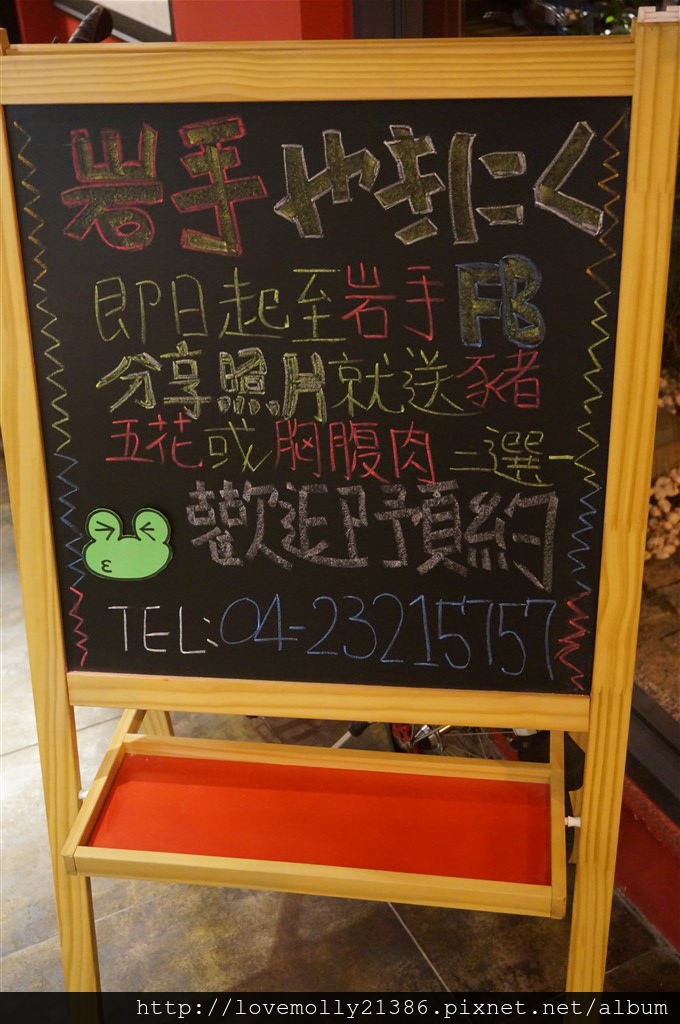 岩手やきにく
即日起至岩手FB
分享照片就送豬
五花或胸腹肉二選一
歡迎預約
TEL:04-23215757
http://lovemolly21386.pixnet.net/album